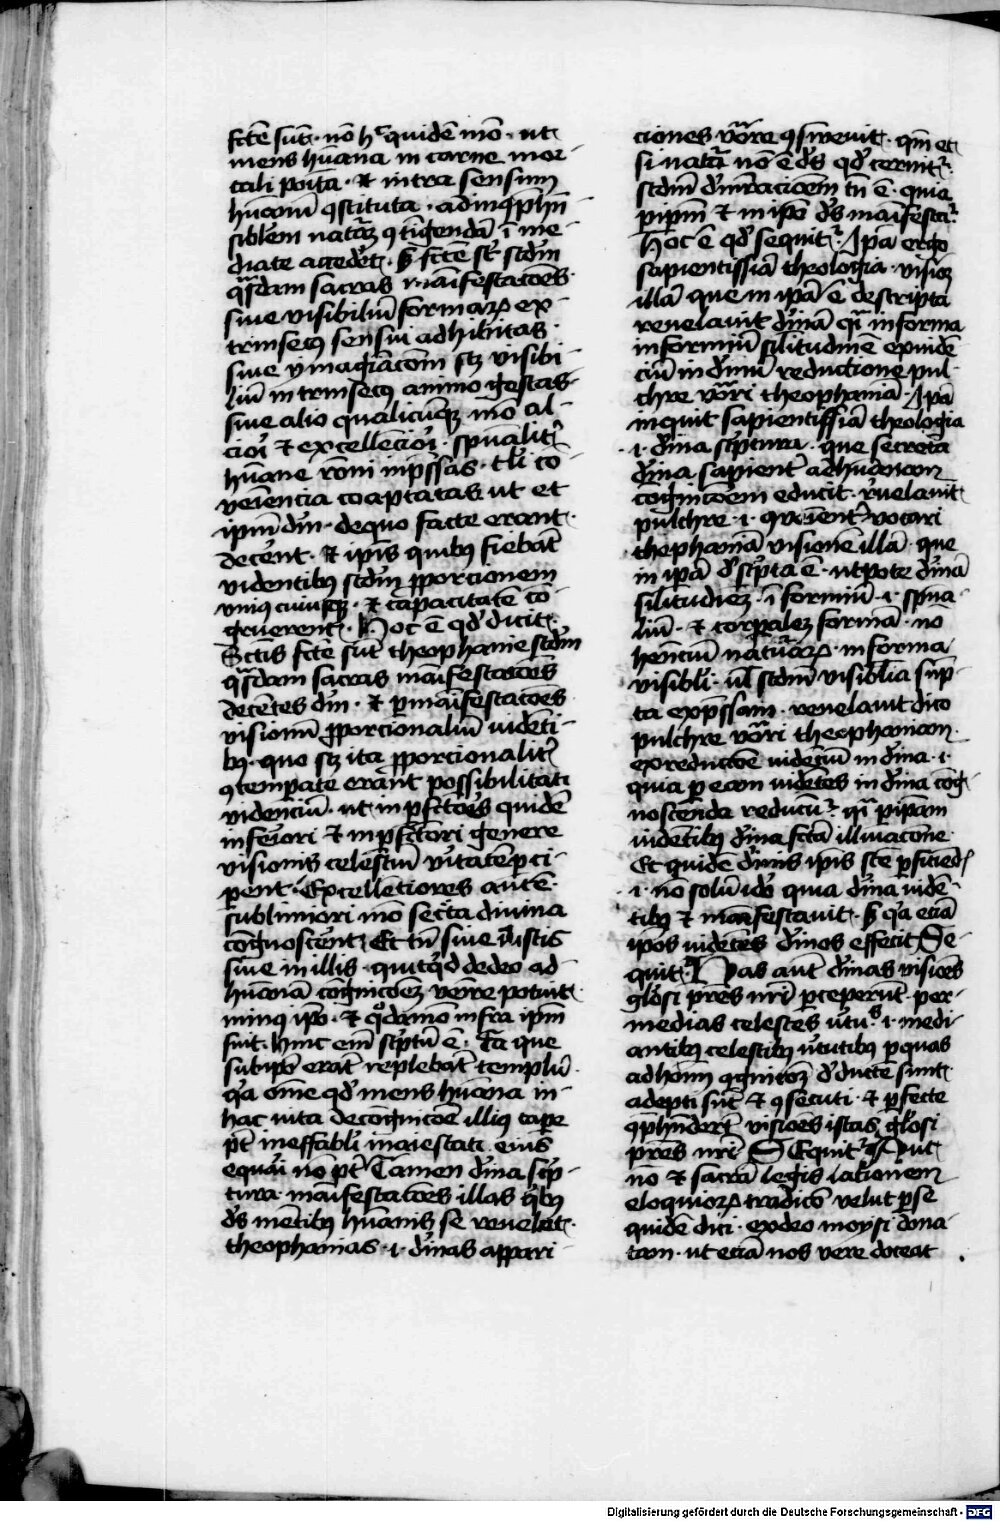 fc̄te sūt · nō h̄ quidē mō · ut
mens hūana in carne mor-
tali po͞ita · et intra sensum
hūanū ꝯstituta · ad
siblem naturā ꝯtīgendā ī me-
diate accedet · s̄ fc̄te sūt scdm̄
q̄sdam sacras manifestac̄oēs
siue visibiliū formaꝝ ex-
trinsecꝰ sensui adhibitas ·
siue ymaginac̄oem sꝫ visibi-
liū intrinsecꝰ animo gestas
siue alio qualicūqꝫ mō al-
ciori et excellēciori · spūaliter
hūane rōni inp̄ssas · tͣli cō-
ueīencia coaptatas ut et
ipm̄ dm̄ · de quo facte erant
decēnt · et ip̄is quibꝰ fiebāt
videntibꝰ scdm̄ ꝓporcionem
vniꝰ cuiusqꝫ · et capacitatē cō-
gruerent · Hoc ē qd̓ dicit ·
Sc̄tis fc̄te sūt theophanie scdm̄
q̄sdam sacras manifestac̄oēs
decētes dm̄ · et ꝑ manifestac̄oēs
visionū ꝓporcionaliū uidēti-
bꝰ · quo sꝫ ita ꝓporcionaliter
ꝯtemꝑate erant possibilitati
videnciū · ut inꝑfectōes quidē
inferiori et inꝑfectiori genere
visionis celestiū v̓tutē ꝑci-
pent · Excellētiores autē
sublimiori mō secreta diuina
cognoscerent · Et tn̄ siue istis
siue in illis · quitqͥd de deo ad
hūanā cognicōeꝫ venire potuit
minꝰ ipo · et qͦdāmō infra ipm̄
fuit · hinc em̄ sc̓ptū ē · Ea que
sub ipo erāt replebāt templū ·
qͣ om̄e qd̓ mens hūana in
hac uita de cognicōe illiꝰ caꝑe
pt̄ ineffabli maiestati eius
equari nō pt̄ Tamen diuina scp̓-
tura manifestac̄oēs illas qͥbꝰ
ds̄ mētibꝰ hūanis se reuelat
theophanias · i · d̓inas appari-
ciones vocare ꝯsweuit · qm̄ et
si natura nō ē ds̄ qd̓ cernitur
scdm̄ tn̄ ē · quia
ꝑ ipam et in ipo ds̄ manifestatur
Hoc ē qd̓ sequitur · Ip̄a ergo
sapientissīa theologia · visionē
illā que in ip̄a ē descripta
reuelauit d̓inā qͣ in forma
informiū silitudinē ex uidē-
ciū in d̓inū reductione pul-
chre vocari theophaniā · Ip̄a
inquit sapientissīa theologia
· i · d̓ina sc̓ptura · que secreta
d̓ina sapienter ad hūanam
cognicōem educit · reuelauit
pulchre · i · ꝯueīenter vocari
thephaniā visionē illā · que
in ip̄a d̓sc̓pta ē · utpote d̓inā
silitudieꝫ · īformiū · i · spūa-
liū · et corꝑaleꝫ formā nō
hēnciū naturaꝝ · in forma
visibli · ul̄ scdm̄ visiblia sūp-
ta exp̄ssam · reuelauit dico
pulchre vocari theophaniam
ex reductōe uidenciū in d̓ina · i ·
quia ꝑ eam uidētes in d̓ina cog-
noscenda reducūtur · qͣ ꝑ ipam
uidētibꝰ d̓ina fc̄ta illuiacōne
Et quidē d̓inis ip̄is scē ꝑficiend
· i · nō solū ido quia d̓ina uidē-
tibꝰ et manifestauit · s̄ qͣ eciā
ipos uidētes d̓inos effecit Se-
quitur · Has aūt d̓inas visiōes
glosi p̄res nr̄i ꝑceperūt · per
medias celestes v̓tutes · i · medi-
antibꝰ celestibꝰ v̓tutibꝰ ꝑ quas
ad hanc ꝯgnitōeꝫ d̓ducte sunt
adepti sūt et ꝯsecuti · et ꝑfecte
ꝯp̄henderūt visiōes istas glosi
p̄res nr̄i SEquitur Aut
nō et sacrā legis lationem
eloquioꝝ tradicō velut ꝑ se
quidē dici · ex deo moysi dona-
tam · ut eciā nos vere doceat
Digitalisierung gefördert durch die Deutsche Forschungsgemeinschaft - DFG